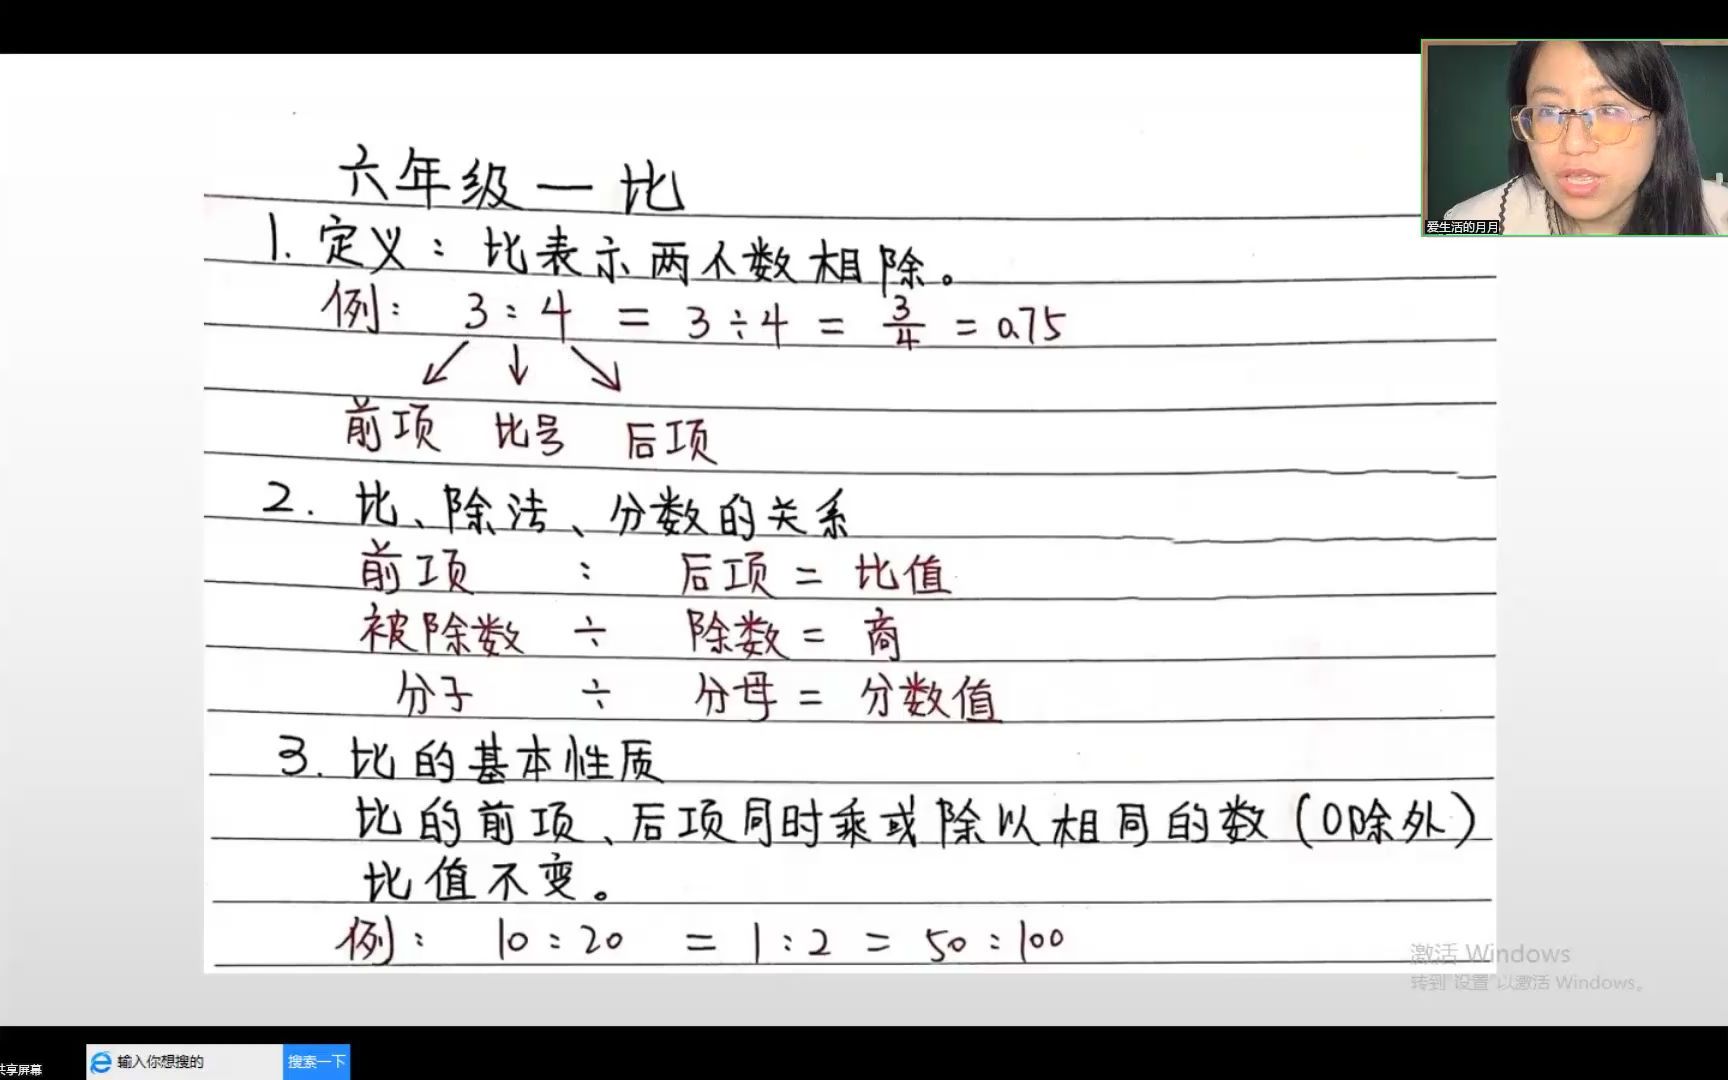 六年级一比
1. 定义：比表示两个数相除。
例： 3 : 4 = 3÷4 = 3/4 = 0.75
前项 比号 后项
2. 比、除法、分数的关系
前项 : 后项 = 比值
被除数 ÷ 除数 = 商
分子 ÷ 分母 = 分数值
3. 比的基本性质
比的前项、后项同时乘或除以相同的数（0除外）
比值不变。
例： 10 : 20 = 1 : 2 = 50 : 100
爱生活的月月
激活 Windows
转到"设置"以激活 Windows。
共享屏幕
输入你想搜的
搜索一下